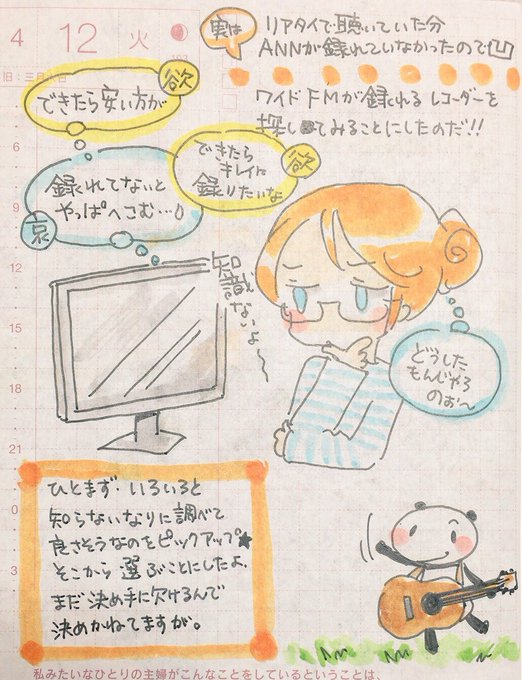 4 12 火
旧:三月
実は
リアタイで聴いていた分
ANNが録れていなかったので凹
ワイドFMが録れるレコーダーを
探してみることにしたのだ!!
欲
できたら安い方が
欲
できたら
キレイに
録りたいな
哀
録れてないと
やっぱへこむ…
知識ないよ〜
どうした
もんじゃろ
のぉ〜
6
9
12
15
18
21
0
3
ひとまず・いろいろと
知らないなりに調べて
良さそうなのをピックアップ★
そこから選ぶことにしたよ。
まだ決め手に欠けるんで
決めかねてますが。
私みたいなひとりの主婦がこんなことをしているということは、